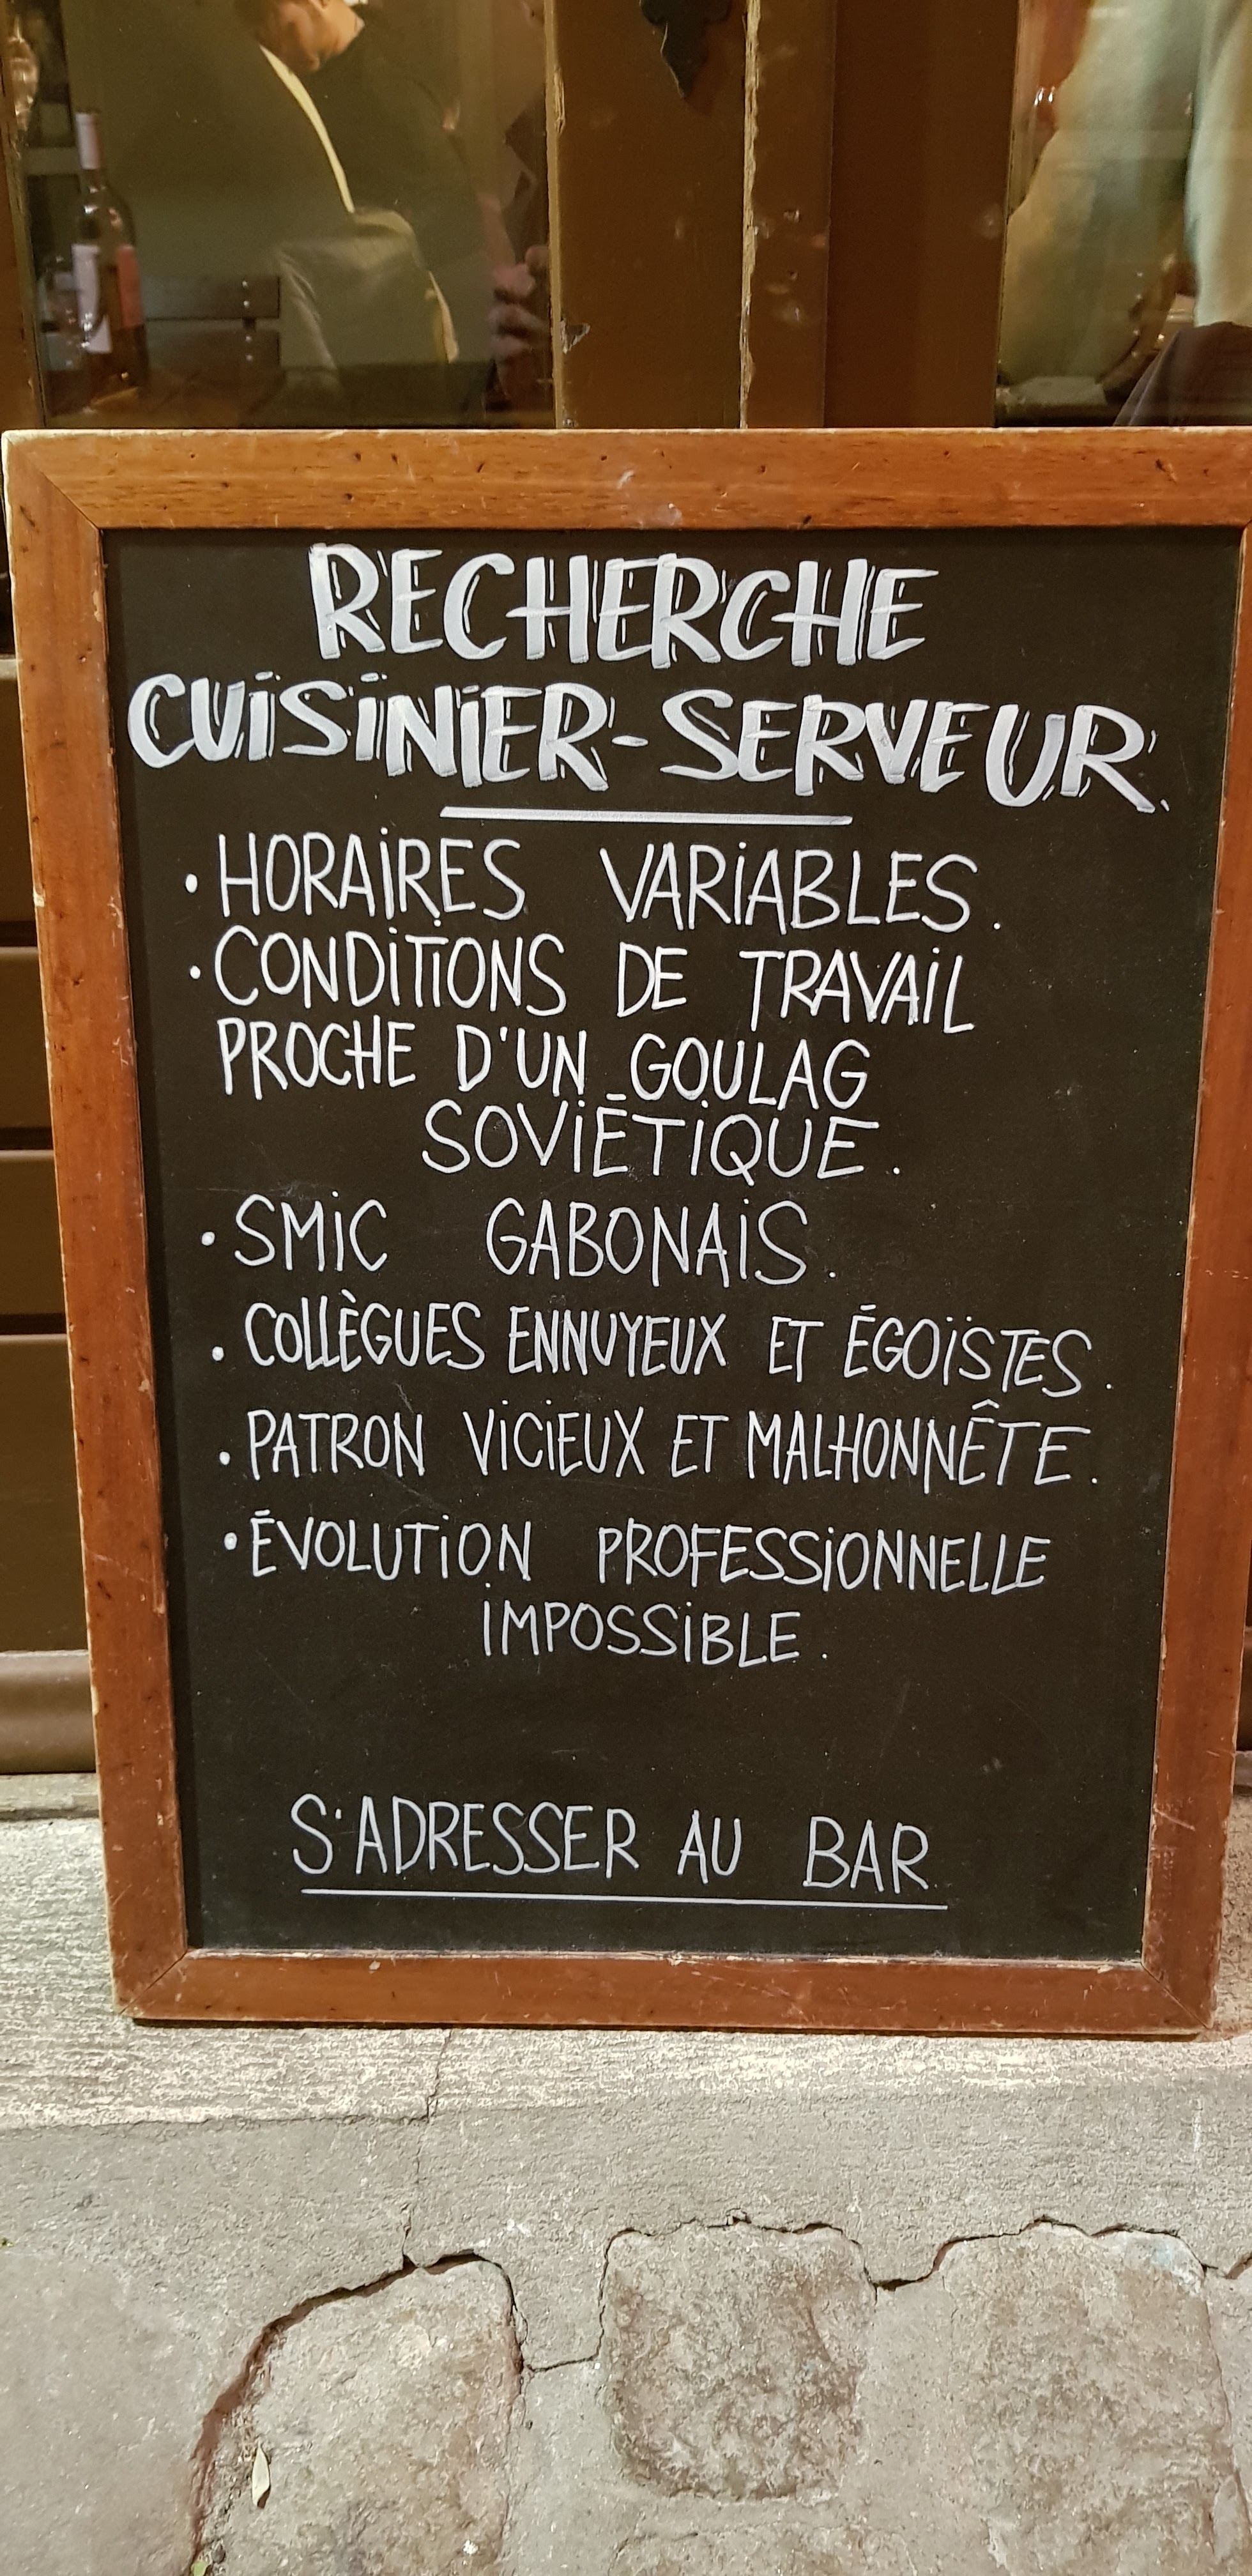 RECHERCHE
CUISINIER-SERVEUR.
• HORAIRES VARIABLES.
• CONDITIONS DE TRAVAIL
PROCHE D'UN GOULAG
SOVIÉTIQUE.
• SMIC GABONAIS.
• COLLÈGUES ENNUYEUX ET ÉGOÏSTES.
• PATRON VICIEUX ET MALHONNÊTE.
• ÉVOLUTION PROFESSIONNELLE
IMPOSSIBLE.
S'ADRESSER AU BAR